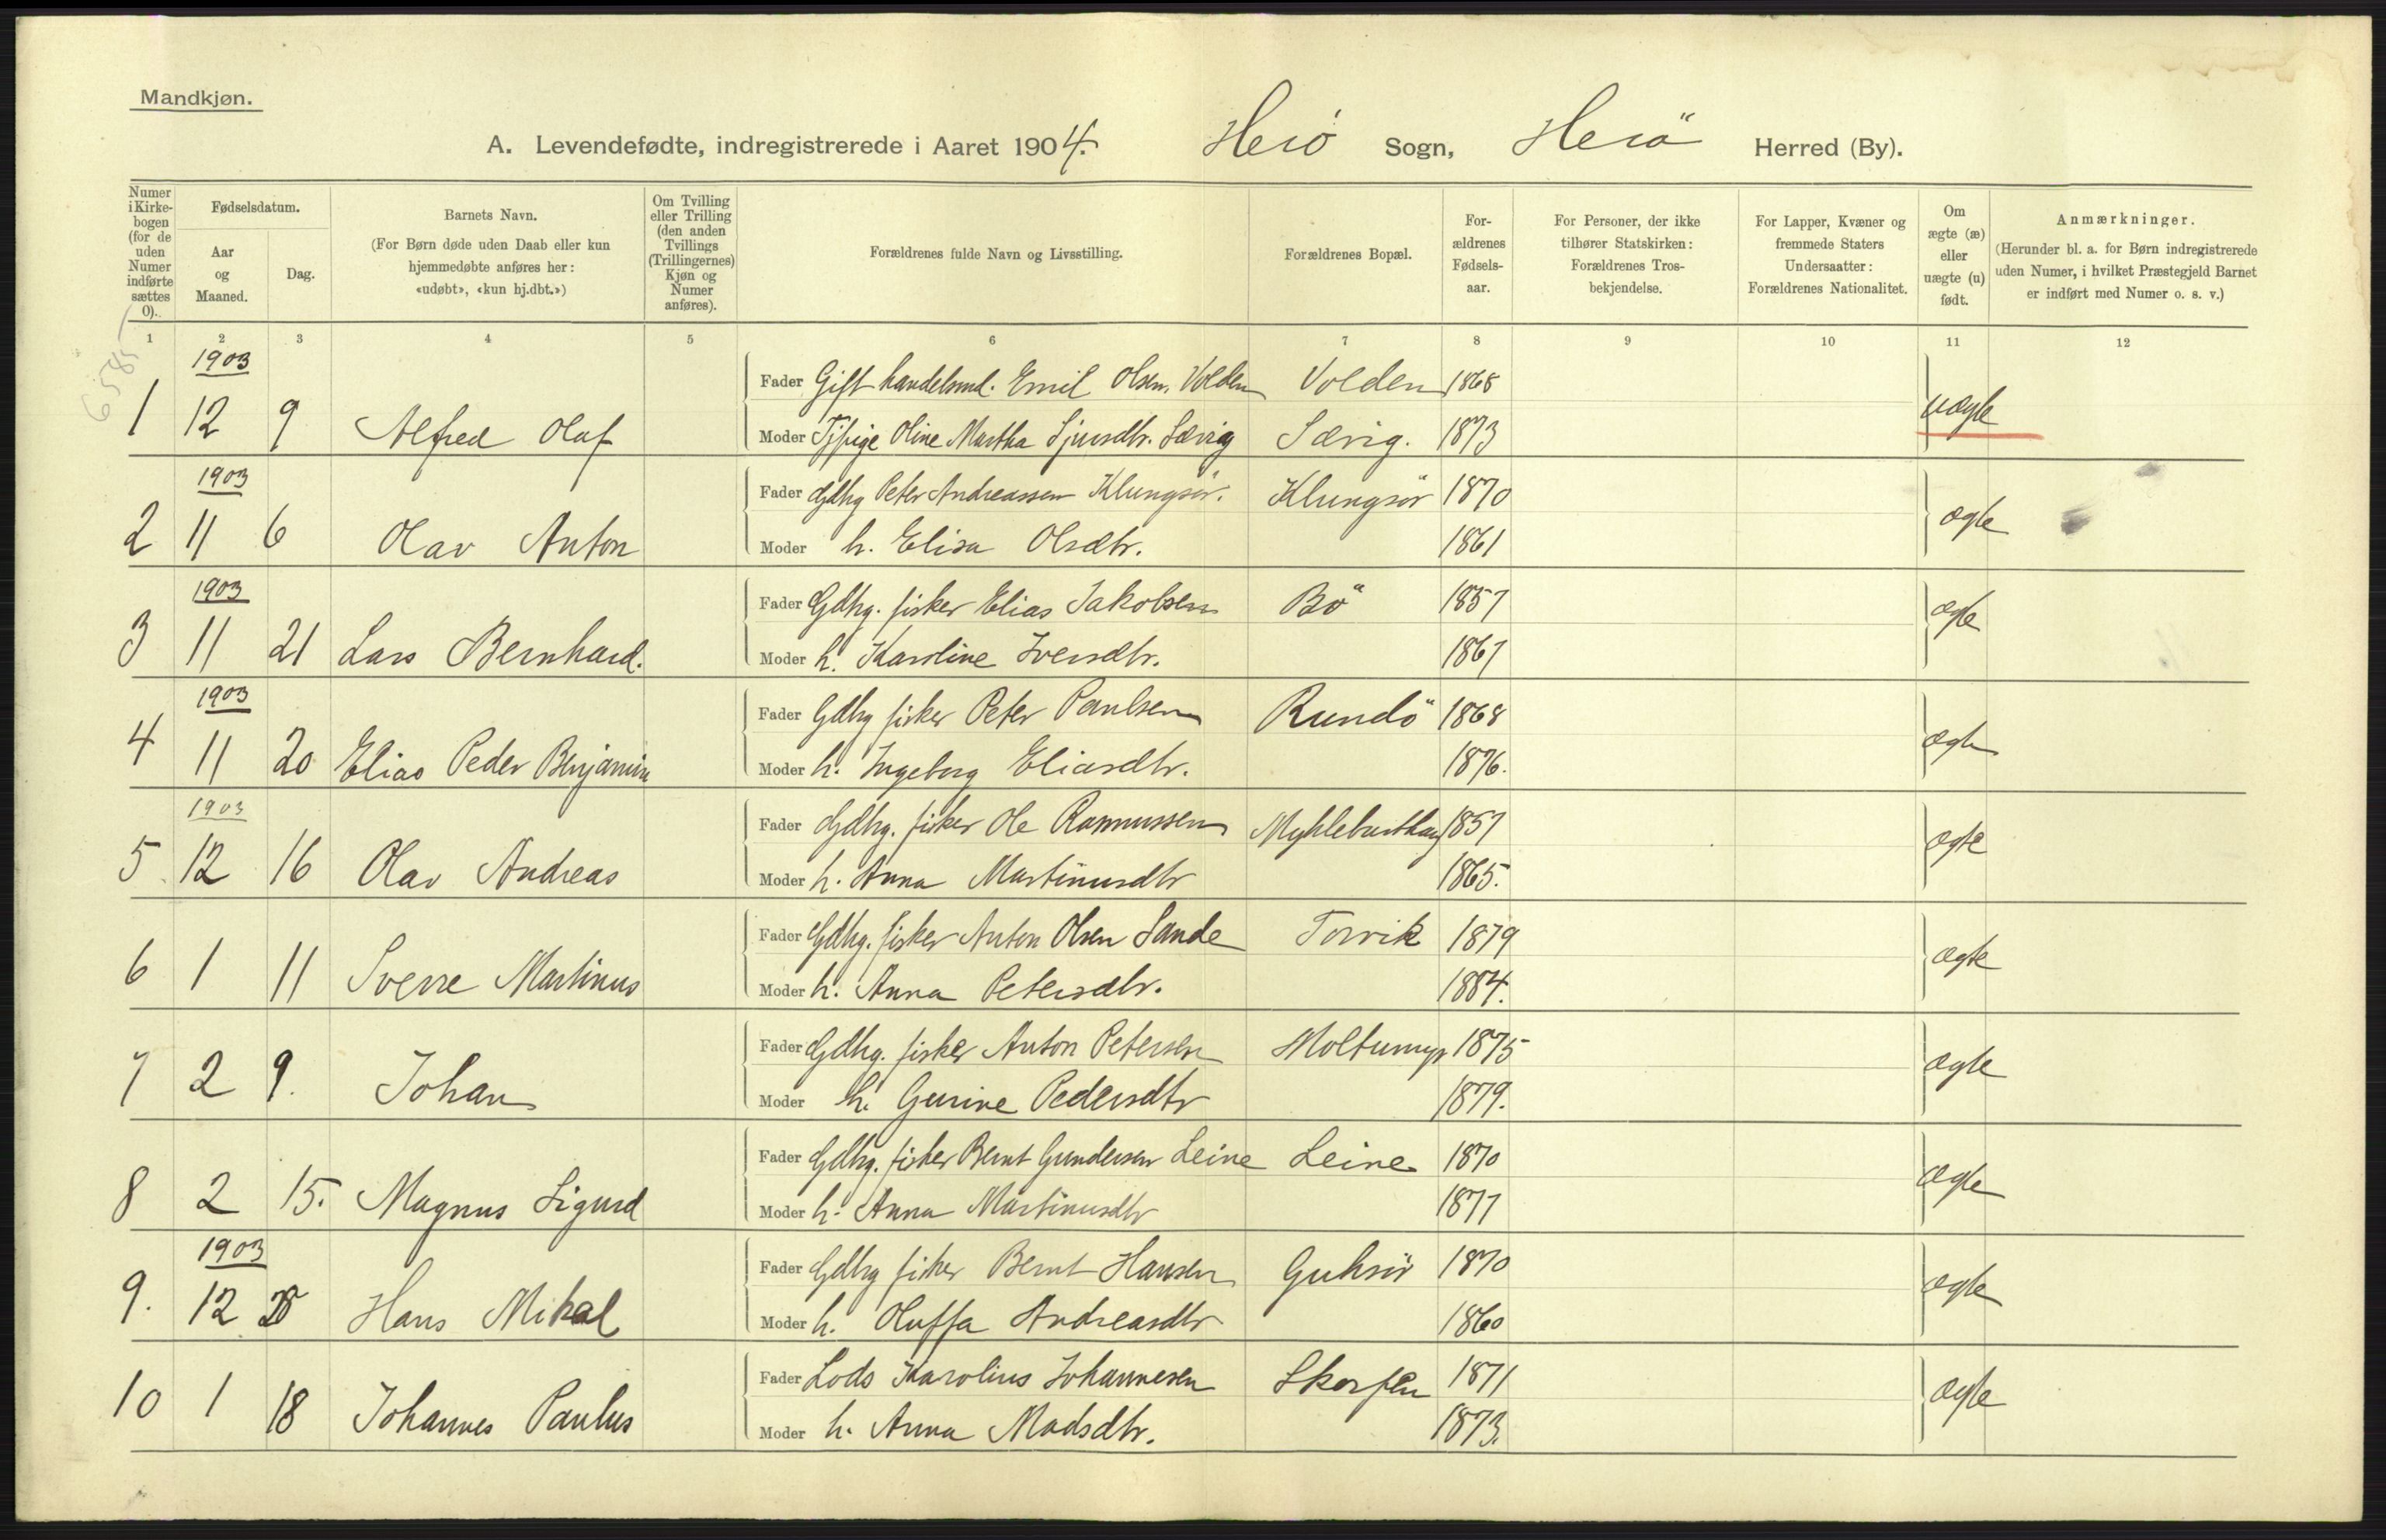 Mandkjøn.
A. Levendefødte, indregistrerede i Aaret 1904. Herö Sogn, Herö Herred (By).
Numer i Kirkebogen (for de uden Numer indførte sættes 0).
Fødselsdatum.
Aar og Maaned.
Dag.
Barnets Navn.
(For Børn døde uden Daab eller kun hjemmedøbte anføres her: «udøbt», «kun hj.dbt.»)
Om Tvilling eller Trilling (den anden Tvillings (Trillingernes) Kjøn og Numer anføres).
Forældrenes fulde Navn og Livsstilling.
Forældrenes Bopæl.
Forældrenes Fødselsaar.
For Personer, der ikke tilhører Statskirken: Forældrenes Trosbekjendelse.
For Lapper, Kvæner og fremmede Staters Undersaatter: Forældrenes Nationalitet.
Om ægte (æ) eller uægte (u) født.
Anmærkninger.
(Herunder bl. a. for Børn indregistrerede uden Numer, i hvilket Præstegjeld Barnet er indført med Numer o. s. v.)
1 2 3 4 5 6 7 8 9 10 11 12
6585
1903
Fader Gift handelsmd. Emil Olsen Volden Volden 1868
1 12 9 Alfred Olaf uægte
Moder Tjpige Oline Martha Sjursdtr. Særvig Særvig. 1873
1903
Fader Gdbrg Peter Andreassen Klungsör. Klungsör 1870
2 11 6 Olav Anton ægte
Moder h. Elisa Olsdtr. 1861
1903
Fader Gdbrg. fisker Elias Jakobsen Bö 1857
3 11 21 Lars Bernhard. ægte
Moder h. Karoline Iversdtr. 1867
1903
Fader Gdbrg fisker Peter Paulsen Rundö 1868
4 11 20 Elias Peder Benjamin ægte
Moder h. Ingeborg Eliasdtr. 1876.
1903
Fader Gdbrg. fisker Ole Rasmussen Myklebusthaug 1857
5 12 16 Olav Andreas ægte
Moder h. Anna Martinusdtr 1865.
Fader Gdbrg. fisker Anton Olsen Sande Torvik 1879
6 1 11 Sverre Martinus ægte
Moder h. Anna Petersdtr. 1884.
Fader Gdbrg. fisker Anton Petersen Moltumyr 1875
7 2 9. Johan ægte
Moder h. Gurine Pedersdtr 1879.
Fader Gdbrg. fisker Bernt Gundersen Leine Leine 1870
8 2 15. Magnus Sigurd ægte
Moder h. Anna Martinusdtr 1877
1903
Fader Gdbrg fisker Bernt Hansen Gursör 1870
9. 12 Hans Mikal ægte
Moder h. Oluffa Andreasdtr 1860
Fader Lods Karolius Johannesen Skorpen 1871
10 1 18 Johannes Paulus ægte
Moder h. Anna Madsdtr. 1873.